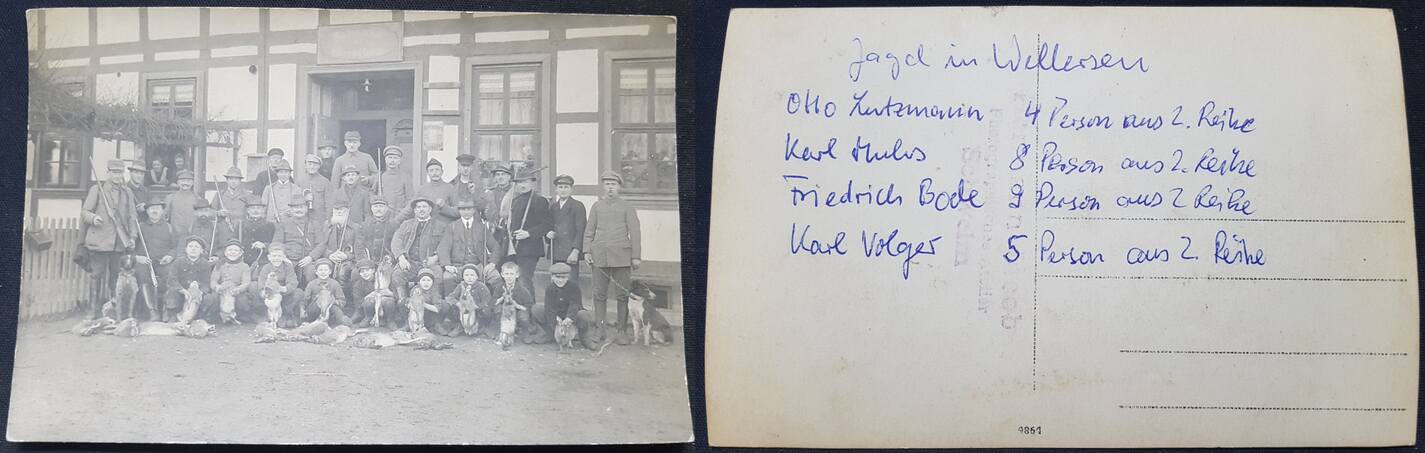 Jagd in Wellersen
Otto Lutzmann 4 Person aus 2. Reihe
Karl 8 Person aus 2. Reihe
Friedrich Bode 9 Person aus 2 Reihe
Karl Volger 5 Person aus 2. Reihe
4861